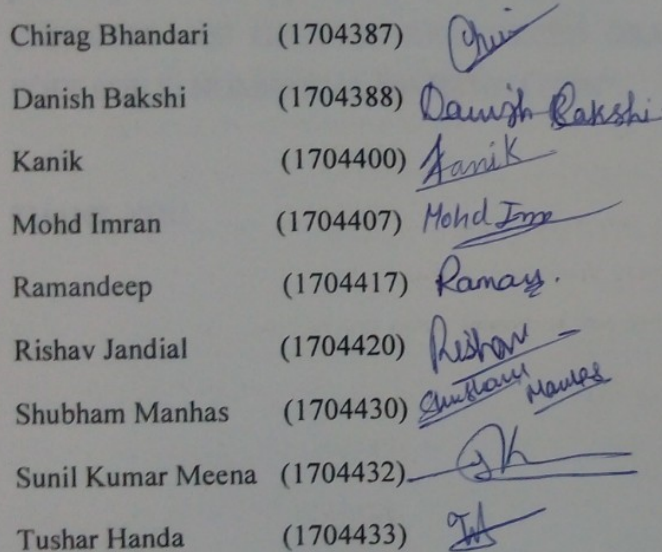 Chirag Bhandari (1704387)
Danish Bakshi (1704388) Danish Bakshi
Kanik (1704400) Kanik
Mohd Imran (1704407) Mohd Imr
Ramandeep (1704417)
Rishav Jandial (1704420) Rishav
Shubham Manhas (1704430) Shubham Manhas
Sunil Kumar Meena (1704432)
Tushar Handa (1704433)